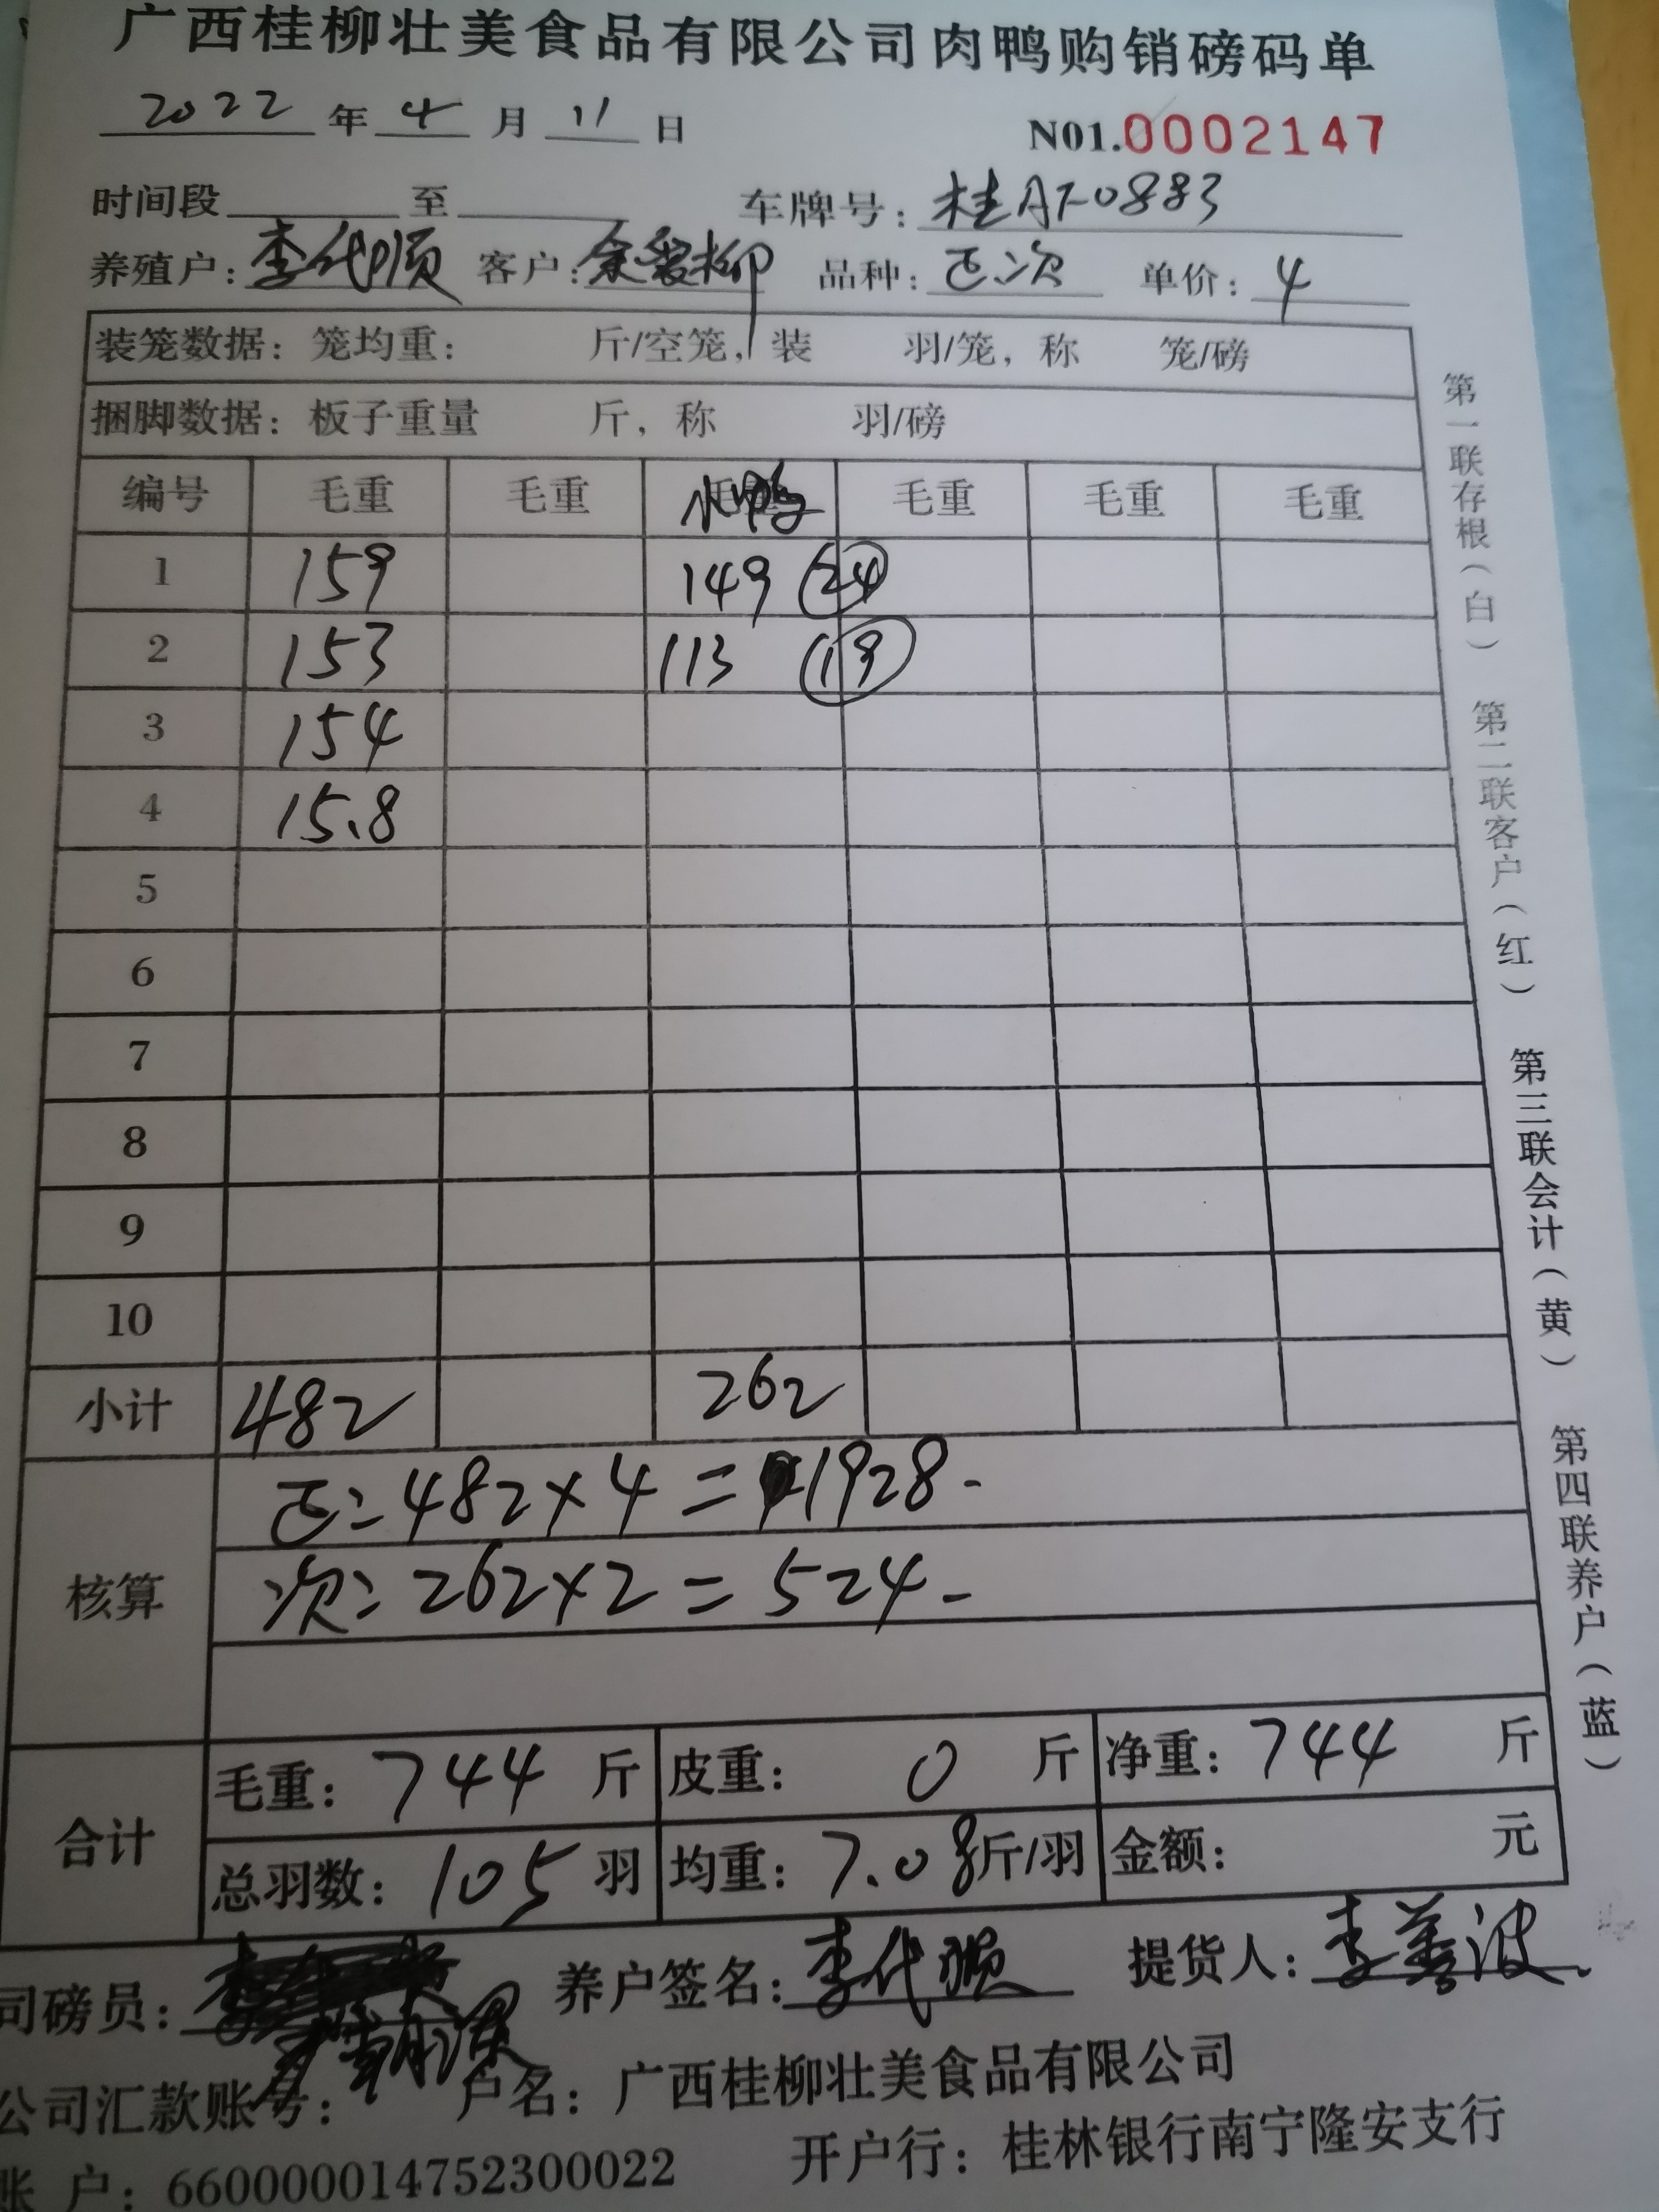 广西桂柳壮美食品有限公司肉鸭购销磅码单
2022 年 4 月 11 日 N01.0002147
时间段 至 车牌号: 桂AF0883
养殖户: 李代顺 客户: 余爱柳 品种: 正次 单价: 4
装笼数据: 笼均重: 斤/空笼, 装 羽/笼, 称 笼/磅
捆脚数据: 板子重量 斤, 称 羽/磅
编号 毛重 毛重 水鸭 毛重 毛重 毛重
1 159 149 24
2 153 113 19
3 154
4 15.8
5
6
7
8
9
10
小计 482 262
核算
正: 482×4=1928-
次: 262×2=524-
合计
毛重: 744 斤 皮重: 0 斤 净重: 744 斤
总羽数: 105 羽 均重: 7.08斤/羽 金额: 元
司磅员: 养户签名: 李代顺 提货人: 李善波
公司汇款账号: 户名: 广西桂柳壮美食品有限公司
账 户: 660000014752300022 开户行: 桂林银行南宁隆安支行
第一联存根(白) 第二联客户(红) 第三联会计(黄) 第四联养户(蓝)